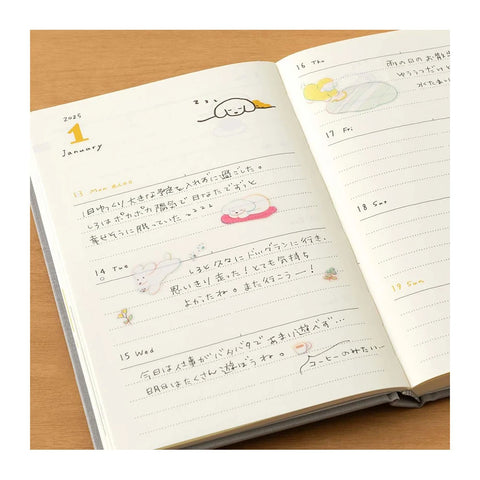 2025
1
January
zzz
13 Mon 成人の日
1日ゆっくり大きな予定を入れずに過ごした。
しろはポカポカ陽気で日なたでずっと
幸せそうに眠っていた zzzz
14 Tue
しろと久々にドッグランに行き、
思いきり走った!とても気持ち
よかったね。また行こうー!
15 Wed
今日は仕事がバタバタであまり遊べず…
明日はたくさん遊ぼうね。
コーヒーのみたい…
16 Thu
雨の日のお散
ゆううつだけど
17 Fri
18 Sat
19 Sun